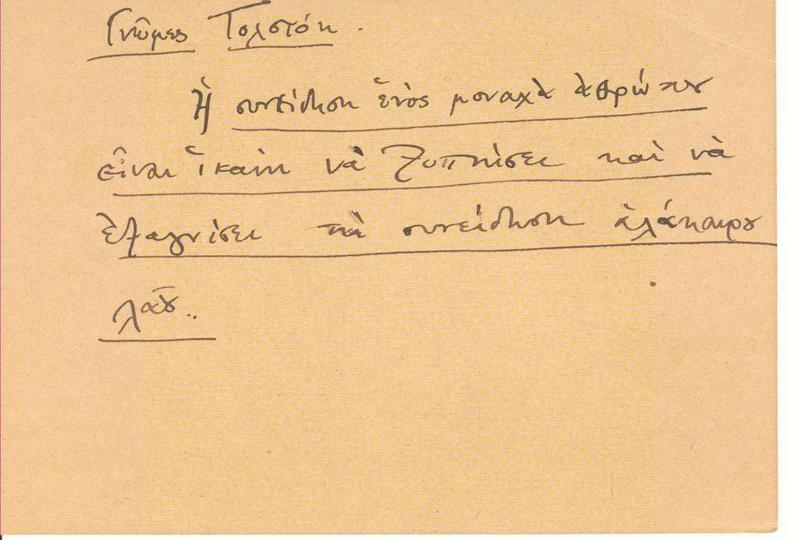 Γνῶμες Τολστόη.
Ἡ συνείδηση ἑνὸς μοναχὰ ἀθρώπου
εἶναι ἱκανὴ νὰ ξυπνήσει καὶ νὰ
ἐξαγνίσει τὴ συνείδηση ἁλάκαιρου
λαοῦ..